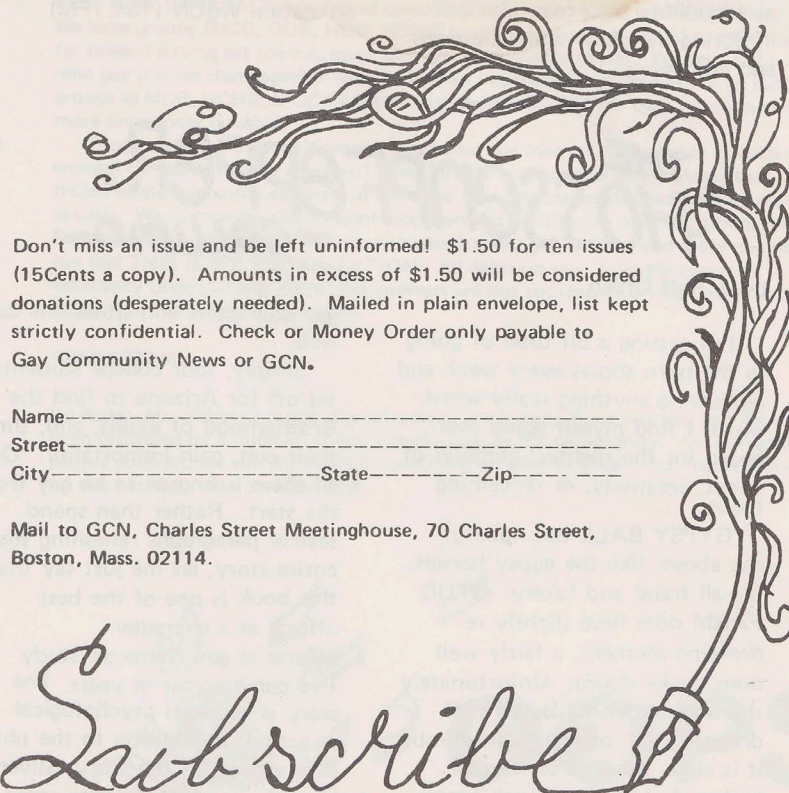 Don't miss an issue and be left uninformed! $1.50 for ten issues
(15Cents a copy). Amounts in excess of $1.50 will be considered
donations (desperately needed). Mailed in plain envelope, list kept
strictly confidential. Check or Money Order only payable to
Gay Community News or GCN.
Name
Street
City State Zip
Mail to GCN, Charles Street Meetinghouse, 70 Charles Street,
Boston, Mass. 02114.
Subscribe